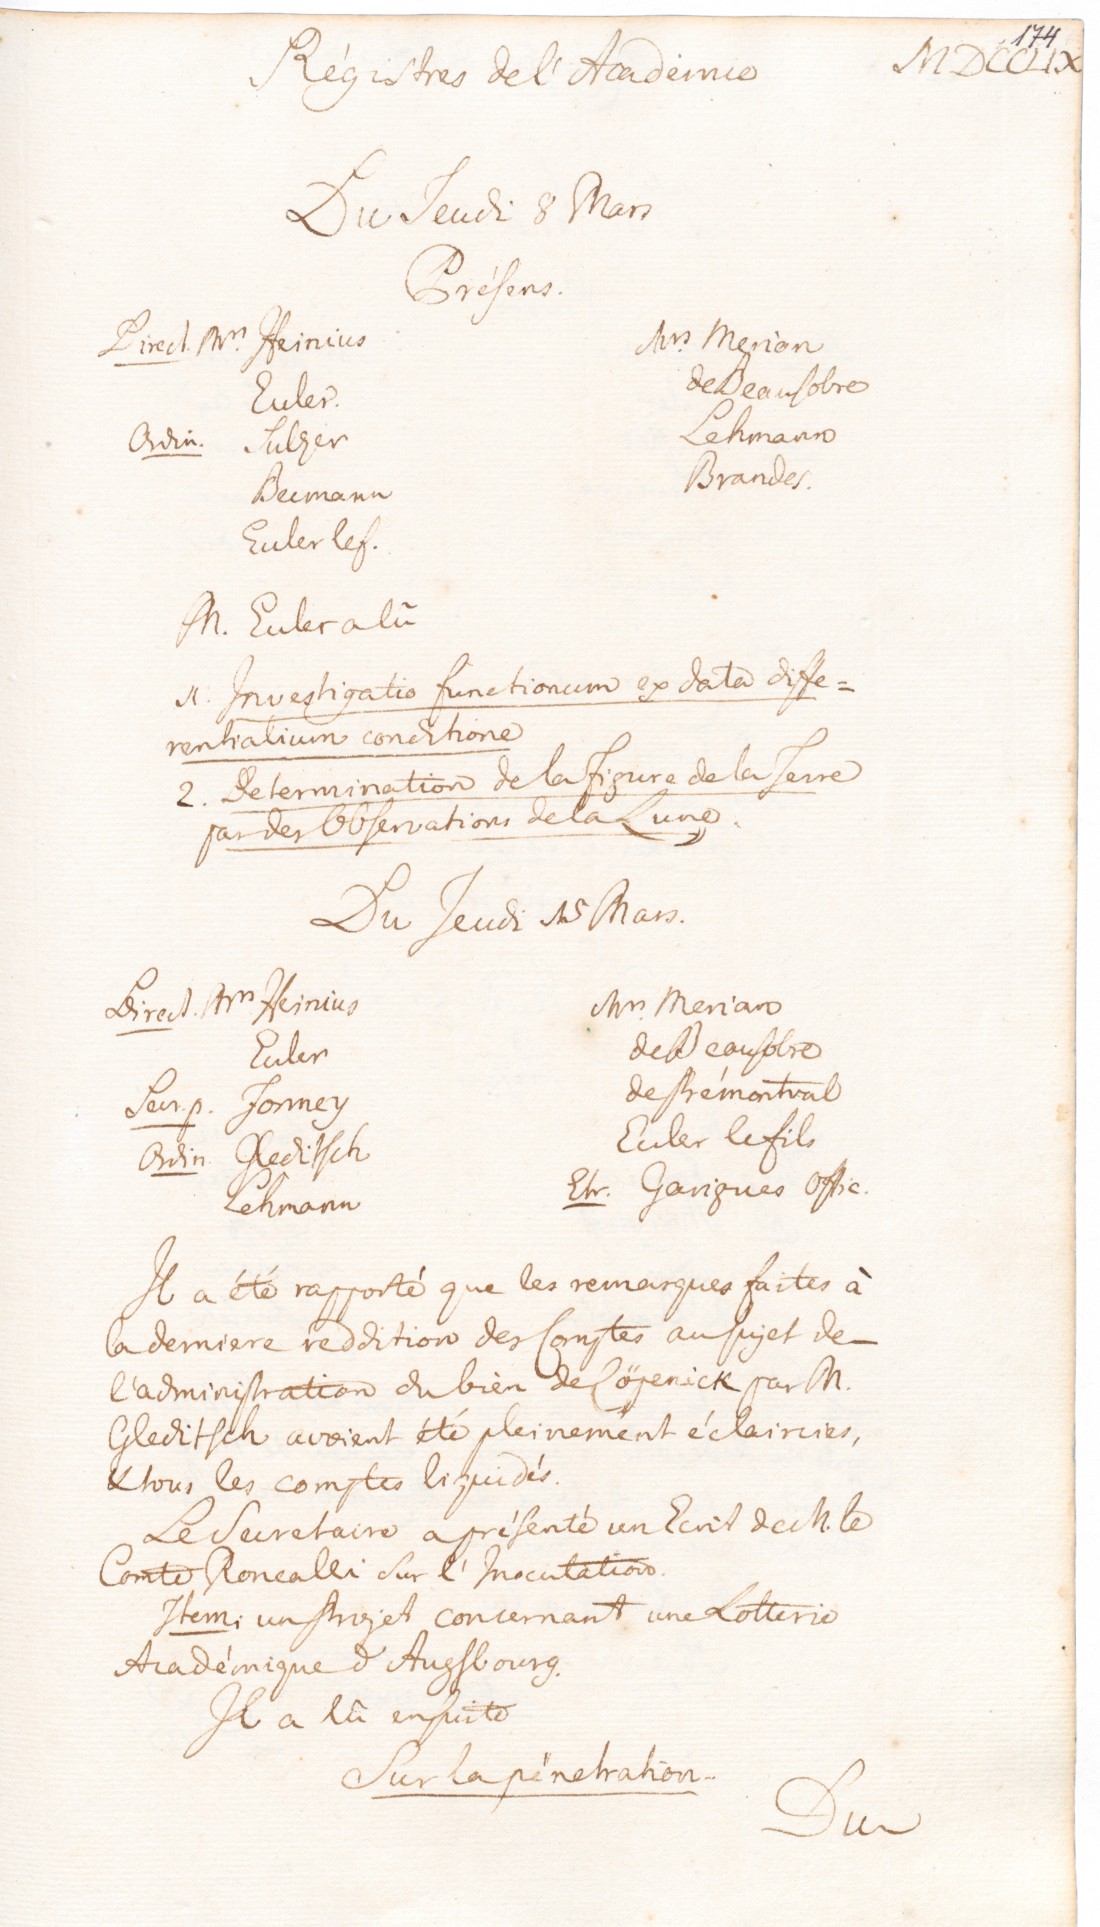 174
Régistres de l'Academie MDCCLIX
Du Jeudi 8 Mars
Présens.
Direct. Mrs. Heinius
Euler.
Ordin. Sulzer
Beumann
Euler le f.
Mrs. Merian
de Beausobre
Lehmann
Brandes.
M. Euler a lû
1. Investigatio functionum ex data diffe=
rentialium conditione
2. Determination de la figure de la Terre
par des Observations de la Lune.
Du Jeudi 15 Mars.
Direct. Mrs Heinius
Euler
Secr. p. Formey
Ordin Gleditsch
Lehmann
Mrs. Merian
de Beausobre
de Prémontval
Euler le fils
Etr. Garigues Offic.
Il a été rapporté que les remarques faites à
la derniere reddition des Comptes au sujet de
l'administration du bien de Cöpenick par M.
Gleditsch avoient été pleinement éclaircies,
& tous les comptes liquidés.
Le Secretaire a présenté un Ecrit de M. le
Comte Roncalli sur l'Inoculation.
Item; un Projet concernant une Lotterie
Académique d'Augsbourg.
Il a lû ensuite
Sur la pénetration.
Du